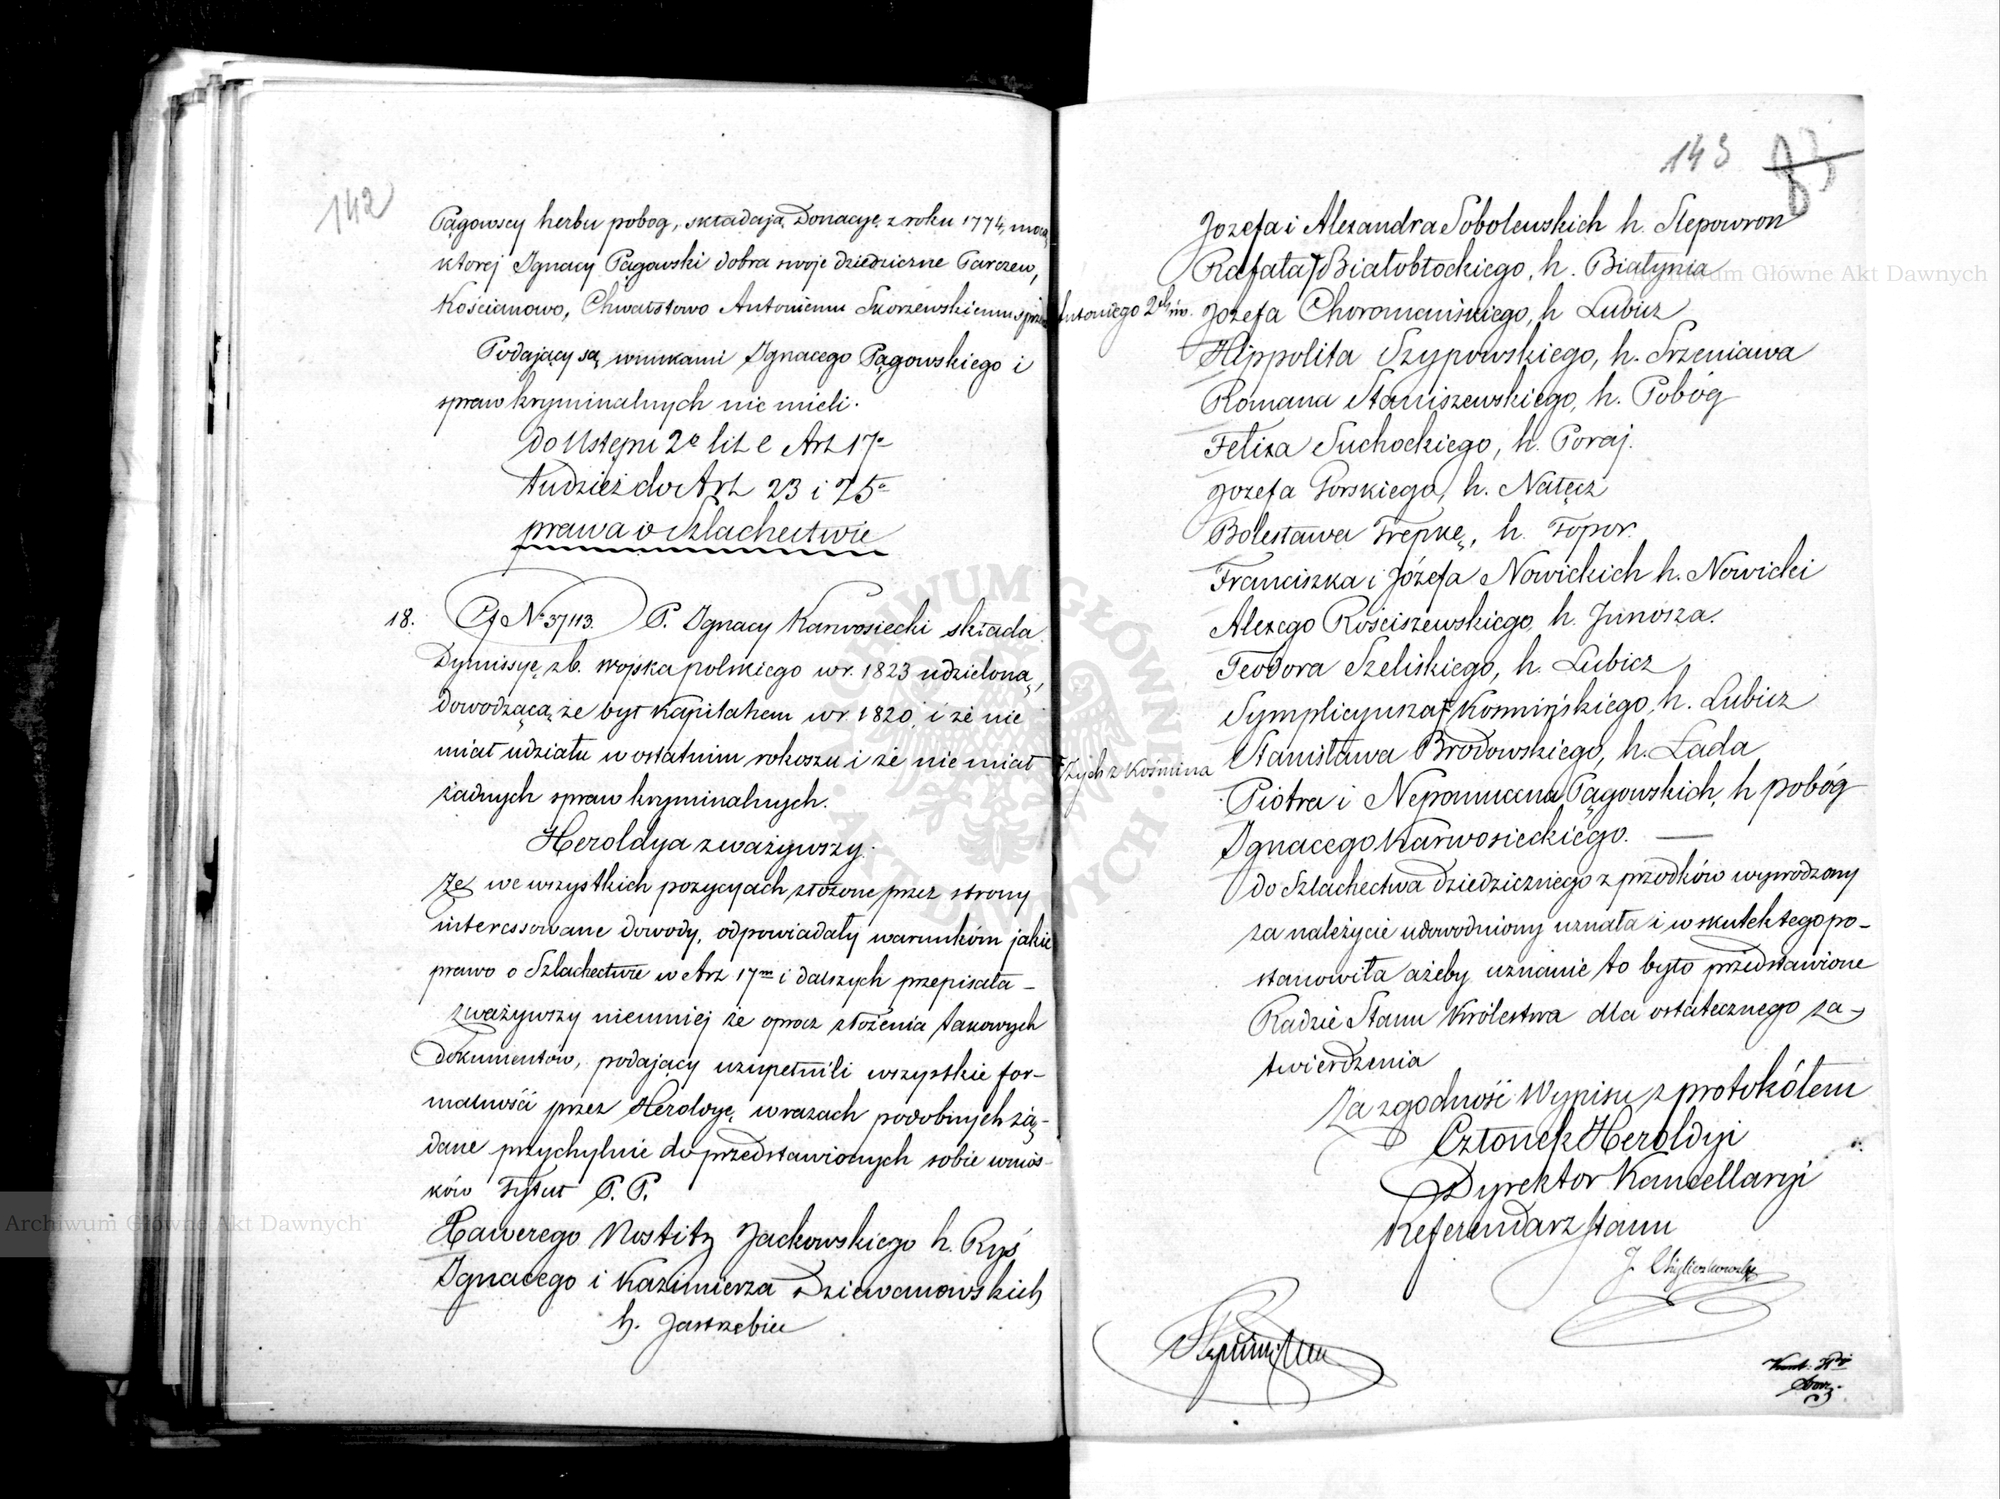 142
Pągowscy herbu pobog, składają Donacyę z roku 1774, mocą
ktorej Ignacy Pągowski dobra swoje dziedziczne Parczew,
Kościanowo, Chwalstowo Antoniemu Skorzewskiemu
Podający są wnukami Ignacego Pągowskiego i
spraw kryminalnych nie mieli.
do Ustępu 2o lit e Art 17o
tudzież do Art 23 i 25o
prawa o Szlachectwie
18. Pf No 37113. P. Ignacy Karwosiecki składa
Dymissyę z b. wojska polskiego w r. 1823 udzieloną,
dowodzącą że był Kapitanem w r. 1820, i że nie
miał udziału w ostatnim rokoszu i że nie miał
żadnych spraw kryminalnych.
Heroldya zważywszy.
że we wszystkich pozycyach złożone przez strony
interessowane dowody, odpowiadały warunkóm jakie
prawo o Szlachectwie w Art 17m i dalszych przepisała –
zważywszy niemniej że oprocz złożenia takowych
dokumentów, podający uzupełnili wszystkie for-
malności przez Heroldyę w razach podobnych żą-
dane przychylnie do przedstawionych sobie wnios-
ków Tytuł P. P.
Xawerego Nostitz Jackowskiego h. Ryś
Ignacego i Kazimierza Dziewanowskich
h. Jastrzębiec
143 83
Jozefa i Alexandra Sobolewskich h. Slepowron
Rafała Białobłockiego, h. Białynia
Antoniego 2ch im. Jozefa Choromańskiego, h Lubicz
Hippolita Szypowskiego, h. Srzeniawa
Romana Staniszewskiego, h. Pobóg
Felixa Suchockiego, h. Poraj.
Jozefa Gorskiego, h. Nałęcz
Bolesława Trepkę, h. Topor.
Franciszka i Józefa Nowickich h. Nowicki
Alexego Rościszewskiego h. Junosza.
Teodora Szeliskiego, h. Lubicz
Symplicyusza Kosmińskiego, h. Lubicz
Stanisława Brodowskiego, h. Łada
Zych z Kośmina
Piotra i Nepomucena Pągowskich, h pobóg
Ignacego Karwosieckiego.
do Szlachectwa dziedzicznego z przodków wywodzony
za należycie udowodniony uznała i w skutek tego po-
stanowiła ażeby uznanie to było przedstawione
Radzie Stanu Królestwa dla ostatecznego za-
twierdzenia
Za zgodność Wypisu z protokółem
Członek Heroldyi
Dyrektor Kancellaryi
Referendarz Stanu
Archiwum Główne Akt Dawnych
Archiwum Główne Akt Dawnych
ARCHIWUM GŁÓWNE AKT DAWNYCH